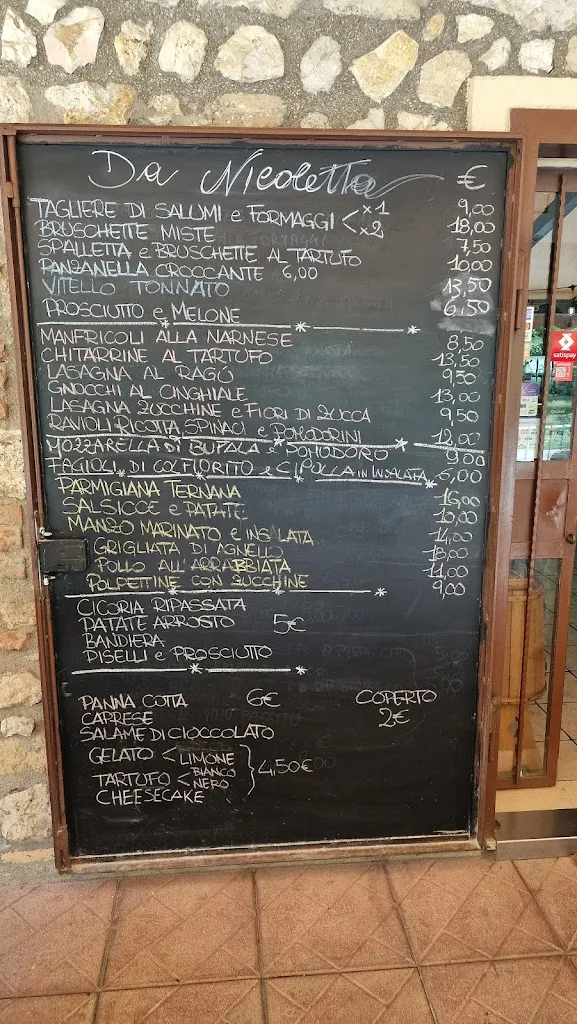 Da Nicoletta €
TAGLIERE DI SALUMI e FORMAGGI < x1 9,00
x2 18,00
BRUSCHETTE MISTE 7,50
SPALLETTA e BRUSCHETTE AL TARTUFO 10,00
PANZANELLA CROCCANTE 6,00
VITELLO TONNATO 13,50
PROSCIUTTO e MELONE 6,50
MANFRICOLI ALLA NARNESE 8,50
CHITARRINE AL TARTUFO 13,50
LASAGNA AL RAGÚ 9,50
GNOCCHI AL CINGHIALE 13,00
LASAGNA ZUCCHINE e FIORI DI ZUCCA 9,50
RAVIOLI RICOTTA, SPINACI e POMODORINI 12,00
MOZZARELLA DI BUFALA e POMODORO 9,00
FAGIOLI DI COLFIORITO e CIPOLLA IN INSALATA 6,00
PARMIGIANA TERNANA
SALSICCE e PATATE 10,00
MANZO MARINATO e INSALATA 14,00
GRIGLIATA DI AGNELLO
POLLO ALL'ARRABBIATA 11,00
POLPETTINE CON ZUCCHINE 9,00
CICORIA RIPASSATA
PATATE ARROSTO 5€
BANDIERA
PISELLI e PROSCIUTTO
PANNA COTTA 6€ COPERTO
CAPRESE 2€
SALAME DI CIOCCOLATO
GELATO < LIMONE
TARTUFO < BIANCO
NERO
} 4,50€
CHEESECAKE
satispay